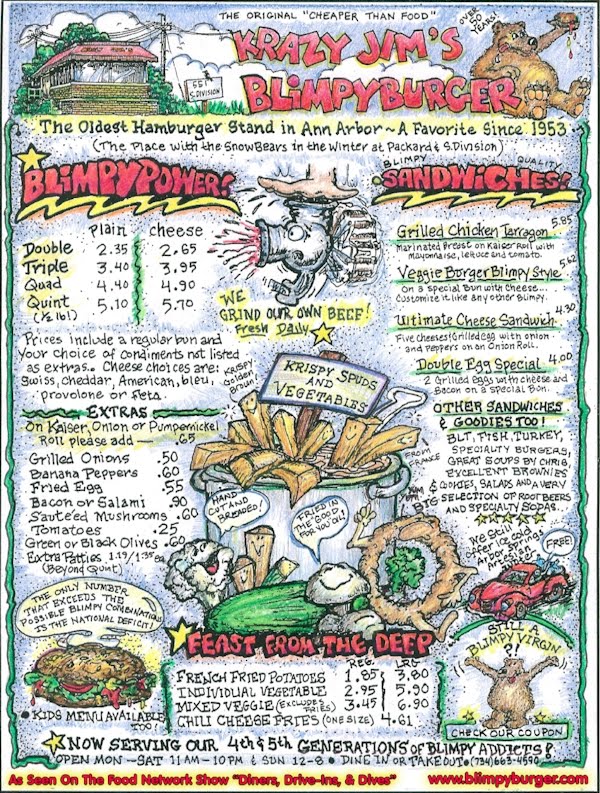 THE ORIGINAL "CHEAPER THAN FOOD"
OVER 50 YEARS!
KRAZY JIM'S
BLIMPYBURGER
551 S. DIVISION
The Oldest Hamburger Stand in Ann Arbor ~ A Favorite Since 1953
(The Place with the SnowBears in the Winter at Packard & S. Division)
BLIMPYPOWER!
Plain Cheese
Double 2.35 2.65
Triple 3.40 3.95
Quad 4.40 4.90
Quint 5.10 5.70
(½ lb!)
Prices include a regular bun and
your choice of condiments not listed
as extras.. Cheese choices are:
Swiss, cheddar, American, bleu,
provolone or feta.
EXTRAS
On Kaiser, Onion or Pumpernickel
Roll please add — .65
Grilled Onions .50
Banana Peppers .60
Fried Egg .55
Bacon or Salami .90
Sauteéd Mushrooms .60
Tomatoes .25
Green or Black Olives .60
Extra Patties 1.19/1.35 ea
(Beyond Quint)
THE ONLY NUMBER
THAT EXCEEDS THE
POSSIBLE BLIMPY COMBINATIONS
IS THE NATIONAL DEFICIT!
• KIDS MENU AVAILABLE
TOO!
WE
GRIND OUR OWN BEEF!
Fresh Daily
KRISPY SPUDS
AND
VEGETABLES
KRISPY
Golden
Brown!
FROM
FRANCE
HAND
CUT AND
BREADED!
FRIED IN
THE GOOD
FOR YOU OIL!
BLIMPY QUALITY
SANDWICHES!
Grilled Chicken Tarragon 5.85
Marinated Breast on Kaiser Roll with
Mayonnaise, lettuce and tomato.
Veggie Burger Blimpy Style 5.62
On a special Bun with Cheese...
Customize it like any other Blimpy.
Ultimate Cheese Sandwich 4.30
Five Cheeses! Grilled Egg with onion
and Peppers on an Onion Roll.
Double Egg Special 4.00
2 Grilled Eggs with cheese and
Bacon on a special Bun.
OTHER SANDWICHES
& GOODIES TOO!
BLT, FISH, TURKEY,
SPECIALTY BURGERS,
GREAT SOUPS BY CHRIS,
EXCELLENT BROWNIES
& COOKIES, SALADS AND A VERY
BIG SELECTION OF ROOT BEERS
AND SPECIALTY SODAS.
We Still
Offer Ice Cold
Arbor Springs
Artesian
Water
FREE!
STILL A
BLIMPY VIRGIN
?!
CHECK OUR COUPON
FEAST FROM THE DEEP
REG. LRG.
FRENCH FRIED POTATOES 1.85 3.80
INDIVIDUAL VEGETABLE 2.95 5.90
MIXED VEGGIE (EXCLUDES FRIES) 3.45 6.90
CHILI CHEESE FRIES (ONE SIZE) 4.61
NOW SERVING OUR 4th & 5th GENERATIONS OF BLIMPY ADDICTS!
OPEN MON—SAT 11 AM - 10 PM & SUN 12-8 • DINE IN OR TAKEOUT • (734) 663-4590
As Seen On The Food Network Show "Diners, Drive-Ins, & Dives" www.blimpyburger.com